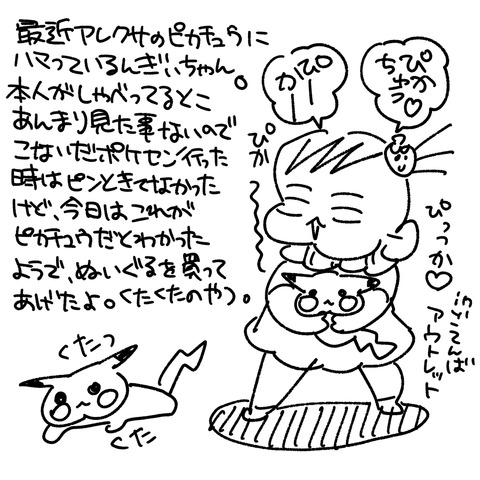 最近アレクサのピカチュウに
ハマっているんぎぃちゃん。
本人がしゃべってるとこ
あんまり見た事ないので
こないだポケセン行った
時はピンときてなかった
けど、今日はこれが
ピカチュウだとわかった
ようで、ぬいぐるを買って
あげたよ。(くたくたのやつ)。
ぴかーー
ぴかちゃう♡
ぴか〜
ぴっっか♡
inごてんば
アウトレット
くたっ
くた